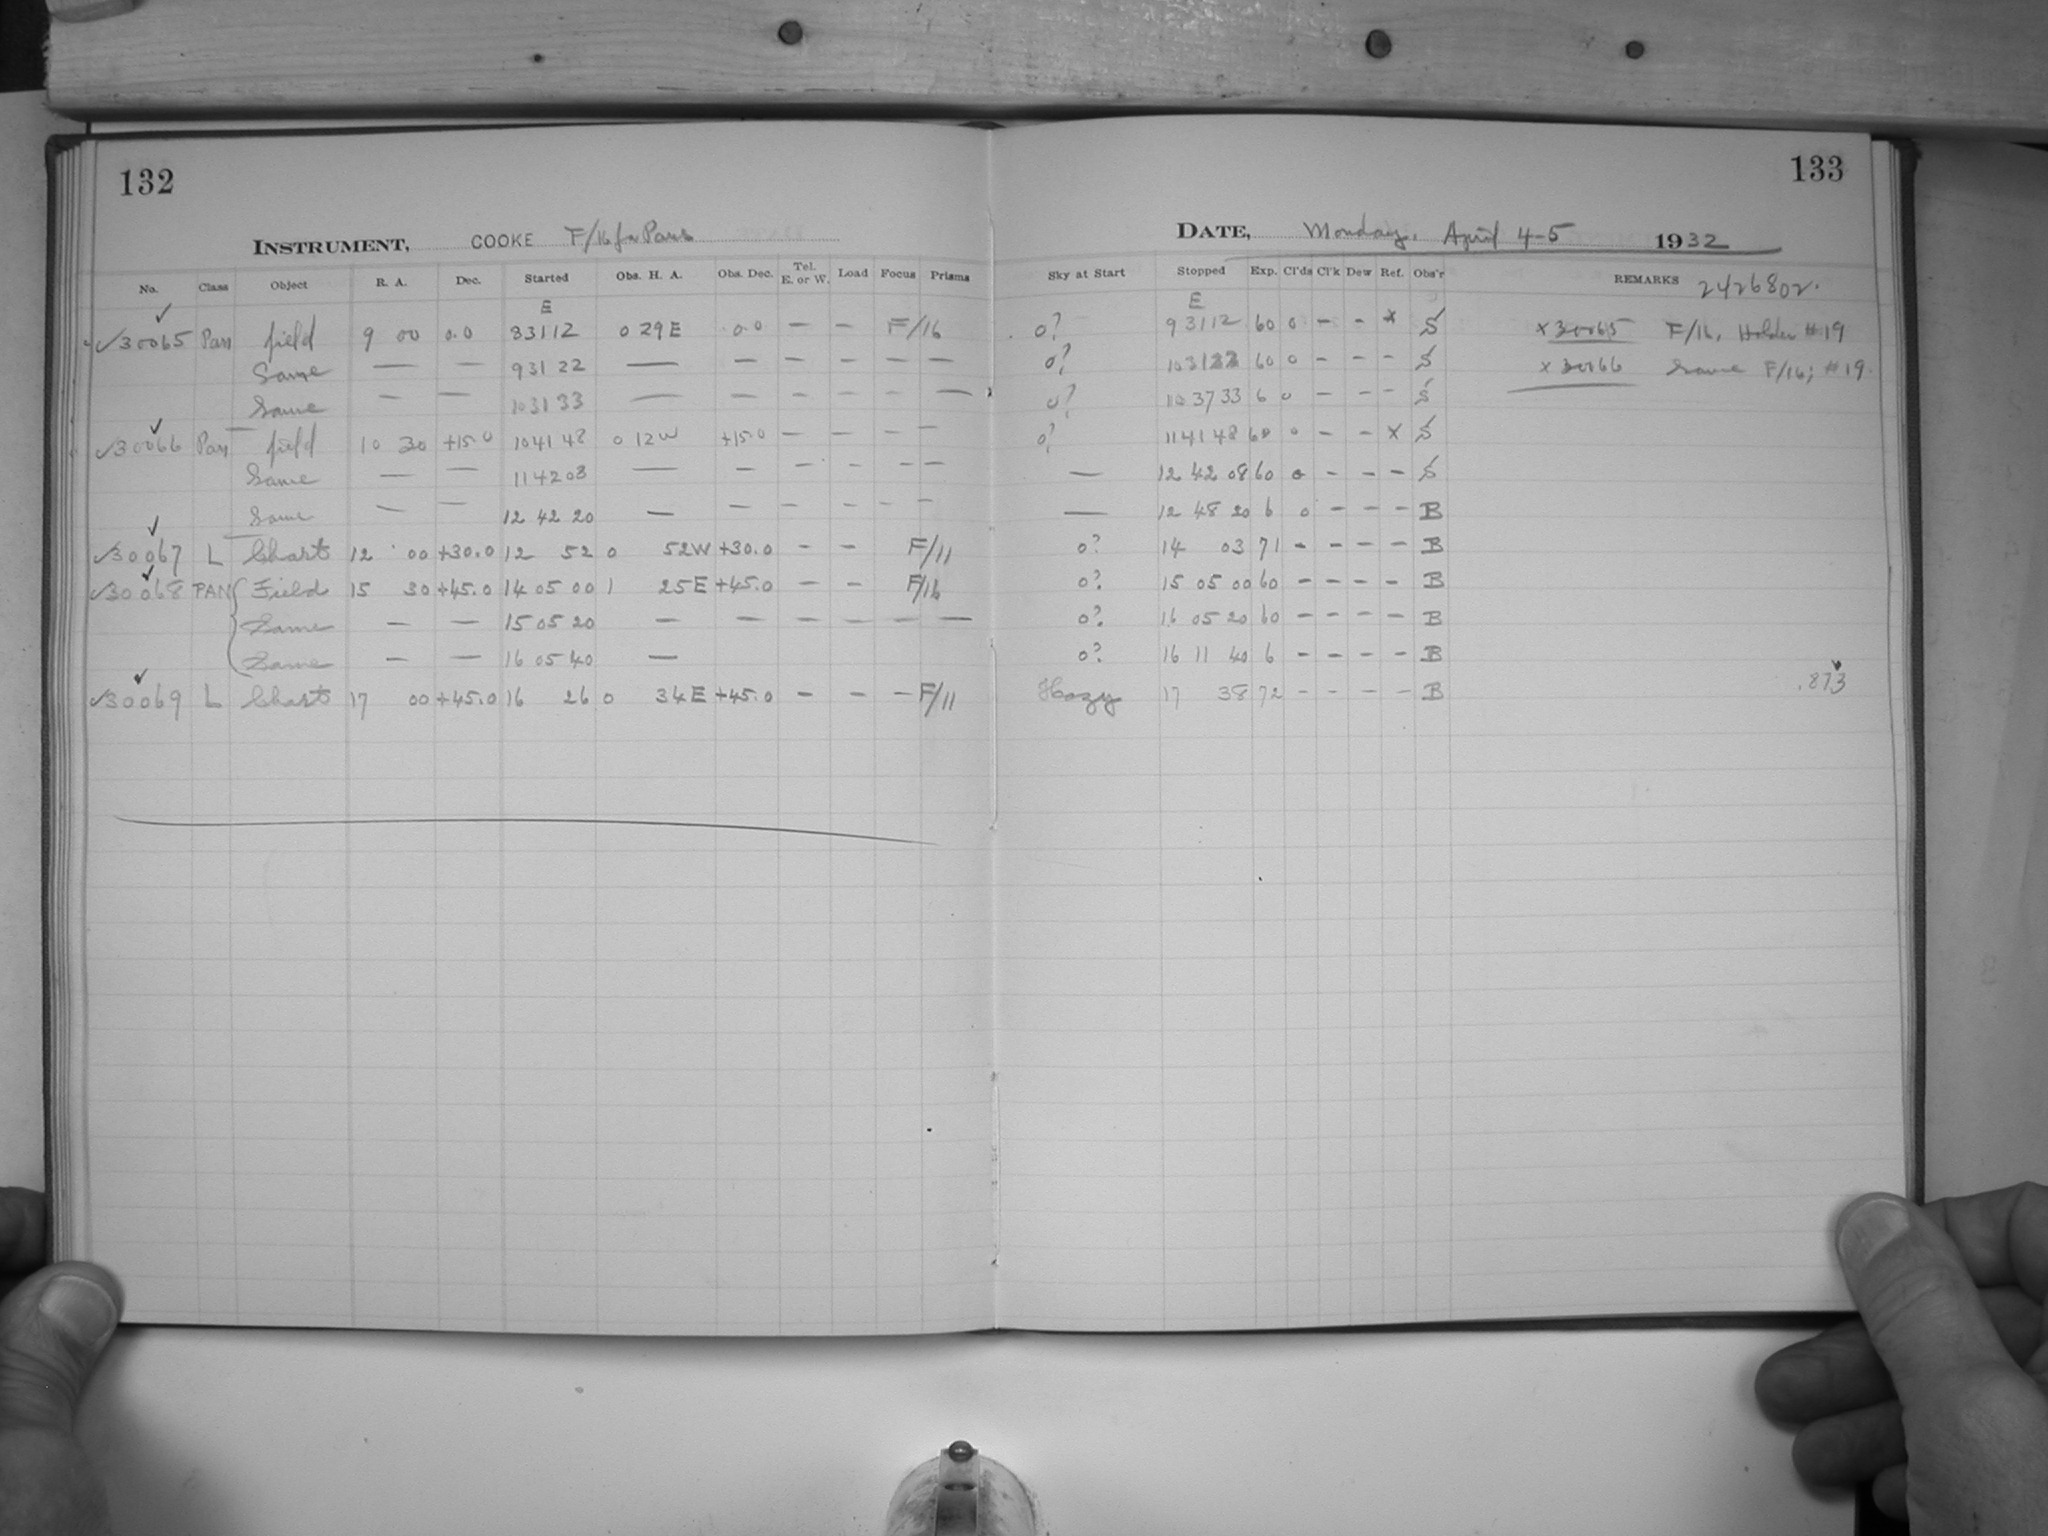 132
133
INSTRUMENT, COOKE F/16 for Pans
DATE, Monday, April 4-5 1932
No. Class Object R. A. Dec. Started Obs. H. A. Obs. Dec. Tel. E. or W. Load Focus Prisms Sky at Start Stopped Exp. Cl'ds Cl'k Dew Ref. Obs'r REMARKS 2426802.
E E
✓30065 Pan field 9 00 0.0 8 31 12 0 29 E 0.0 — — F/16 0? 9 31 12 60 0 - - x S x 30065 F/16, Holder #19
Same — — 9 31 22 — — — — — — 0? 10 31 22 60 0 - - - S x 30066 Same F/16; #19.
Same — — 10 31 33 — — — — — — 0? 10 37 33 6 0 - - - S
✓30066 Pan field 10 30 +15.0 10 41 48 0 12 W +15.0 — — — — 0? 11 41 48 60 0 - - x S
Same — — 11 42 08 — — — — — — — 12 42 08 60 0 - - - S
Same — — 12 42 20 — — — — — — — 12 48 20 6 0 - - - B
✓30067 L Chart 12 00 +30.0 12 52 0 52 W +30.0 - - F/11 0? 14 03 71 - - - - B
✓30068 PAN Field 15 30 +45.0 14 05 00 1 25 E +45.0 - - F/16 0? 15 05 00 60 - - - - B
Same — — 15 05 20 — — — — — — 0? 16 05 20 60 - - - - B
Same — — 16 05 40 — 0? 16 11 40 6 - - - - B
✓30069 L Chart 17 00 +45.0 16 26 0 34 E +45.0 - - - F/11 Hazy 17 38 72 - - - - B .873